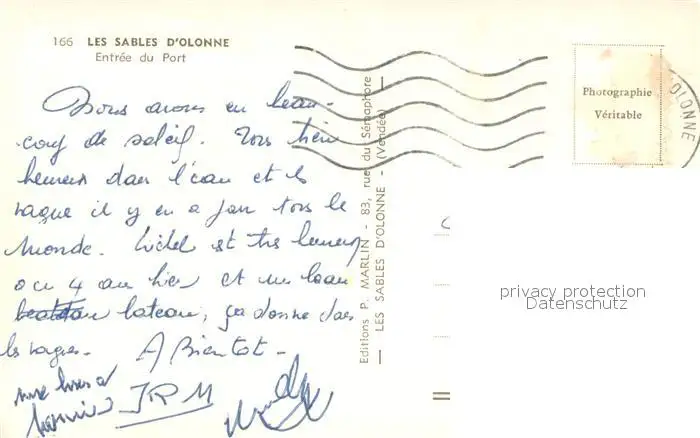 166 LES SABLES D'OLONNE
Entrée du Port
Nous avons eu beau-
coup de soleil. Tous bien
heureux dans l'eau et les
vagues il y en a pour tous le
monde. est très heureux
a eu 4 ans hier et un beau
bateau, ça donne dans
les vagues. A Bientot -
JRM
Editions P. MARLIN - 83, rue du Sémaphore
LES SABLES D'OLONNE - (Vendée)
Photographie
Véritable
OLONNE
privacy protection
Datenschutz